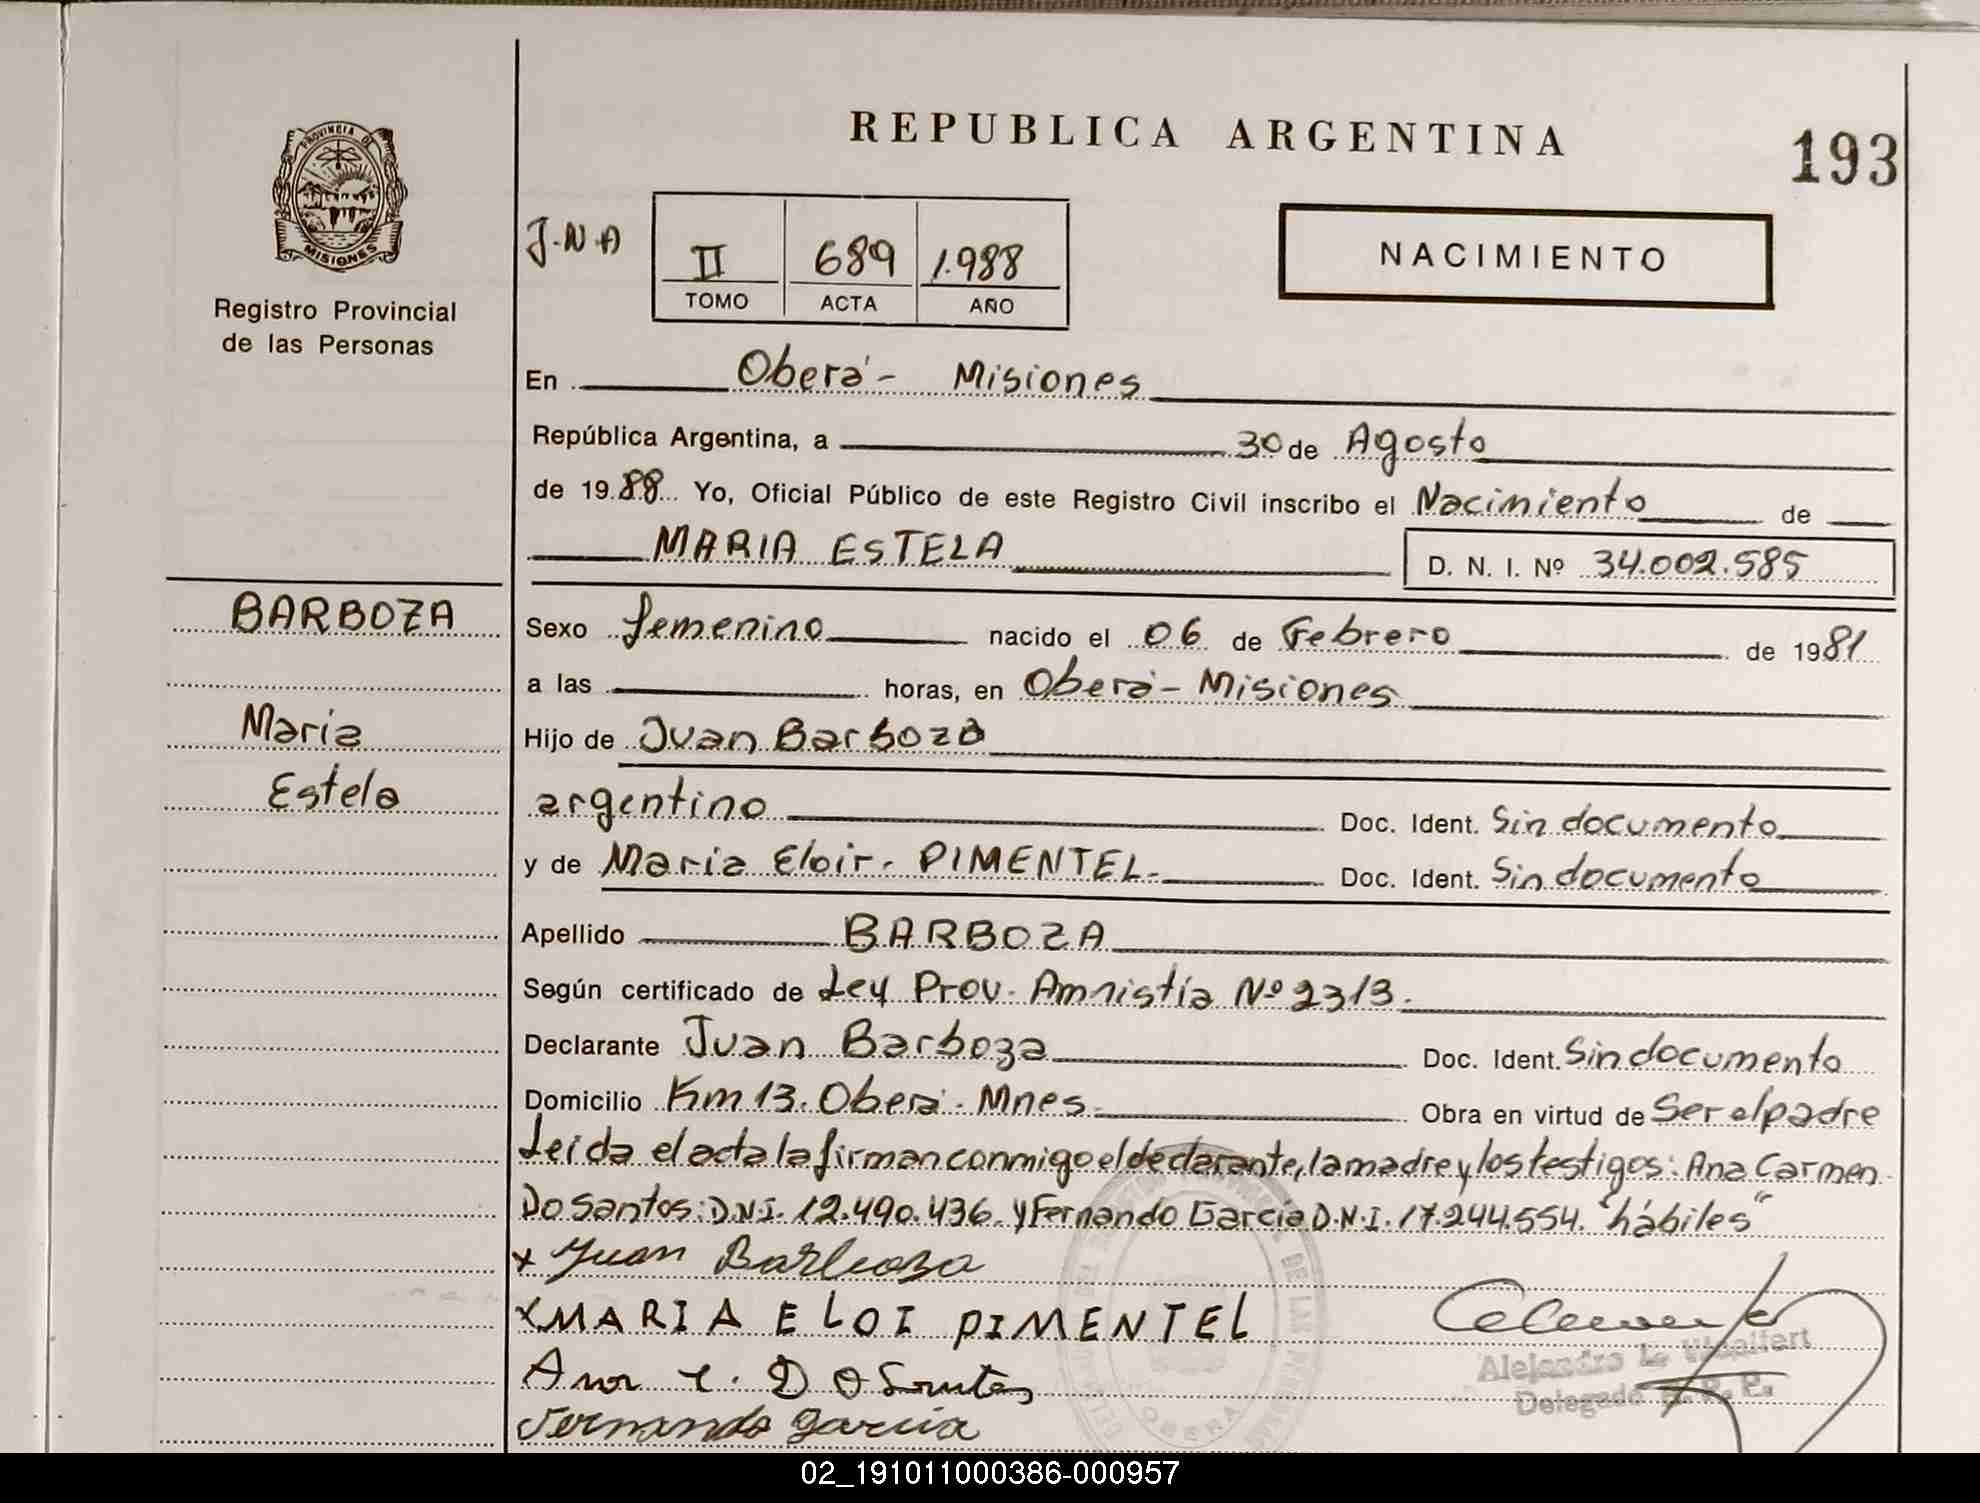 REPUBLICA ARGENTINA
193
PROVINCIA DE
MISIONES
Registro Provincial
de las Personas
J.N.A
II 689 1.988
TOMO ACTA AÑO
NACIMIENTO
En Oberá - Misiones
República Argentina, a 30 de Agosto
de 1988 Yo, Oficial Público de este Registro Civil inscribo el Nacimiento de
MARIA ESTELA D. N. I. Nº 34.002.585
BARBOZA
Maria
Estela
Sexo femenino nacido el 06 de Febrero de 1981
a las horas, en Oberá - Misiones
Hijo de Juan Barboza
argentino Doc. Ident. Sin documento
y de Maria Eloir. PIMENTEL- Doc. Ident. Sin documento
Apellido BARBOZA
Según certificado de Ley Prov. Amnistía Nº 2313.
Declarante Juan Barboza Doc. Ident. Sin documento
Domicilio Km 13. Oberá. Mnes. Obra en virtud de Ser el padre
Leida el acta la firman conmigo el declarante, la madre y los testigos: Ana Carmen
Do Santos: D.N.I. 12.490.436. y Fernando García D.N.I. 17.244.554. "hábiles"
x Juan Barboza
x MARIA ELOI PIMENTEL
Ana C. D O Santos
Fernando Garcia
Alejandro L.
Delegado R. P. P.
OBERA
02_191011000386-000957